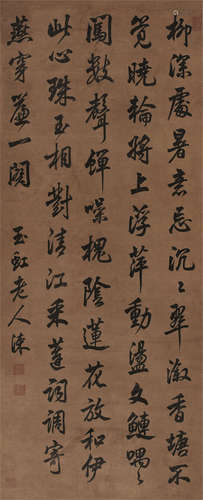 柳深處暑意忘沉〻翠漵香塘不
覺曉輪將上浮萍動盪文鰱喁〻
闖數聲蟬噪槐陰蓮花放和伊
此心珠玉相對清江采蓮詞調寄
燕穿簾一闋
玉虹老人涑